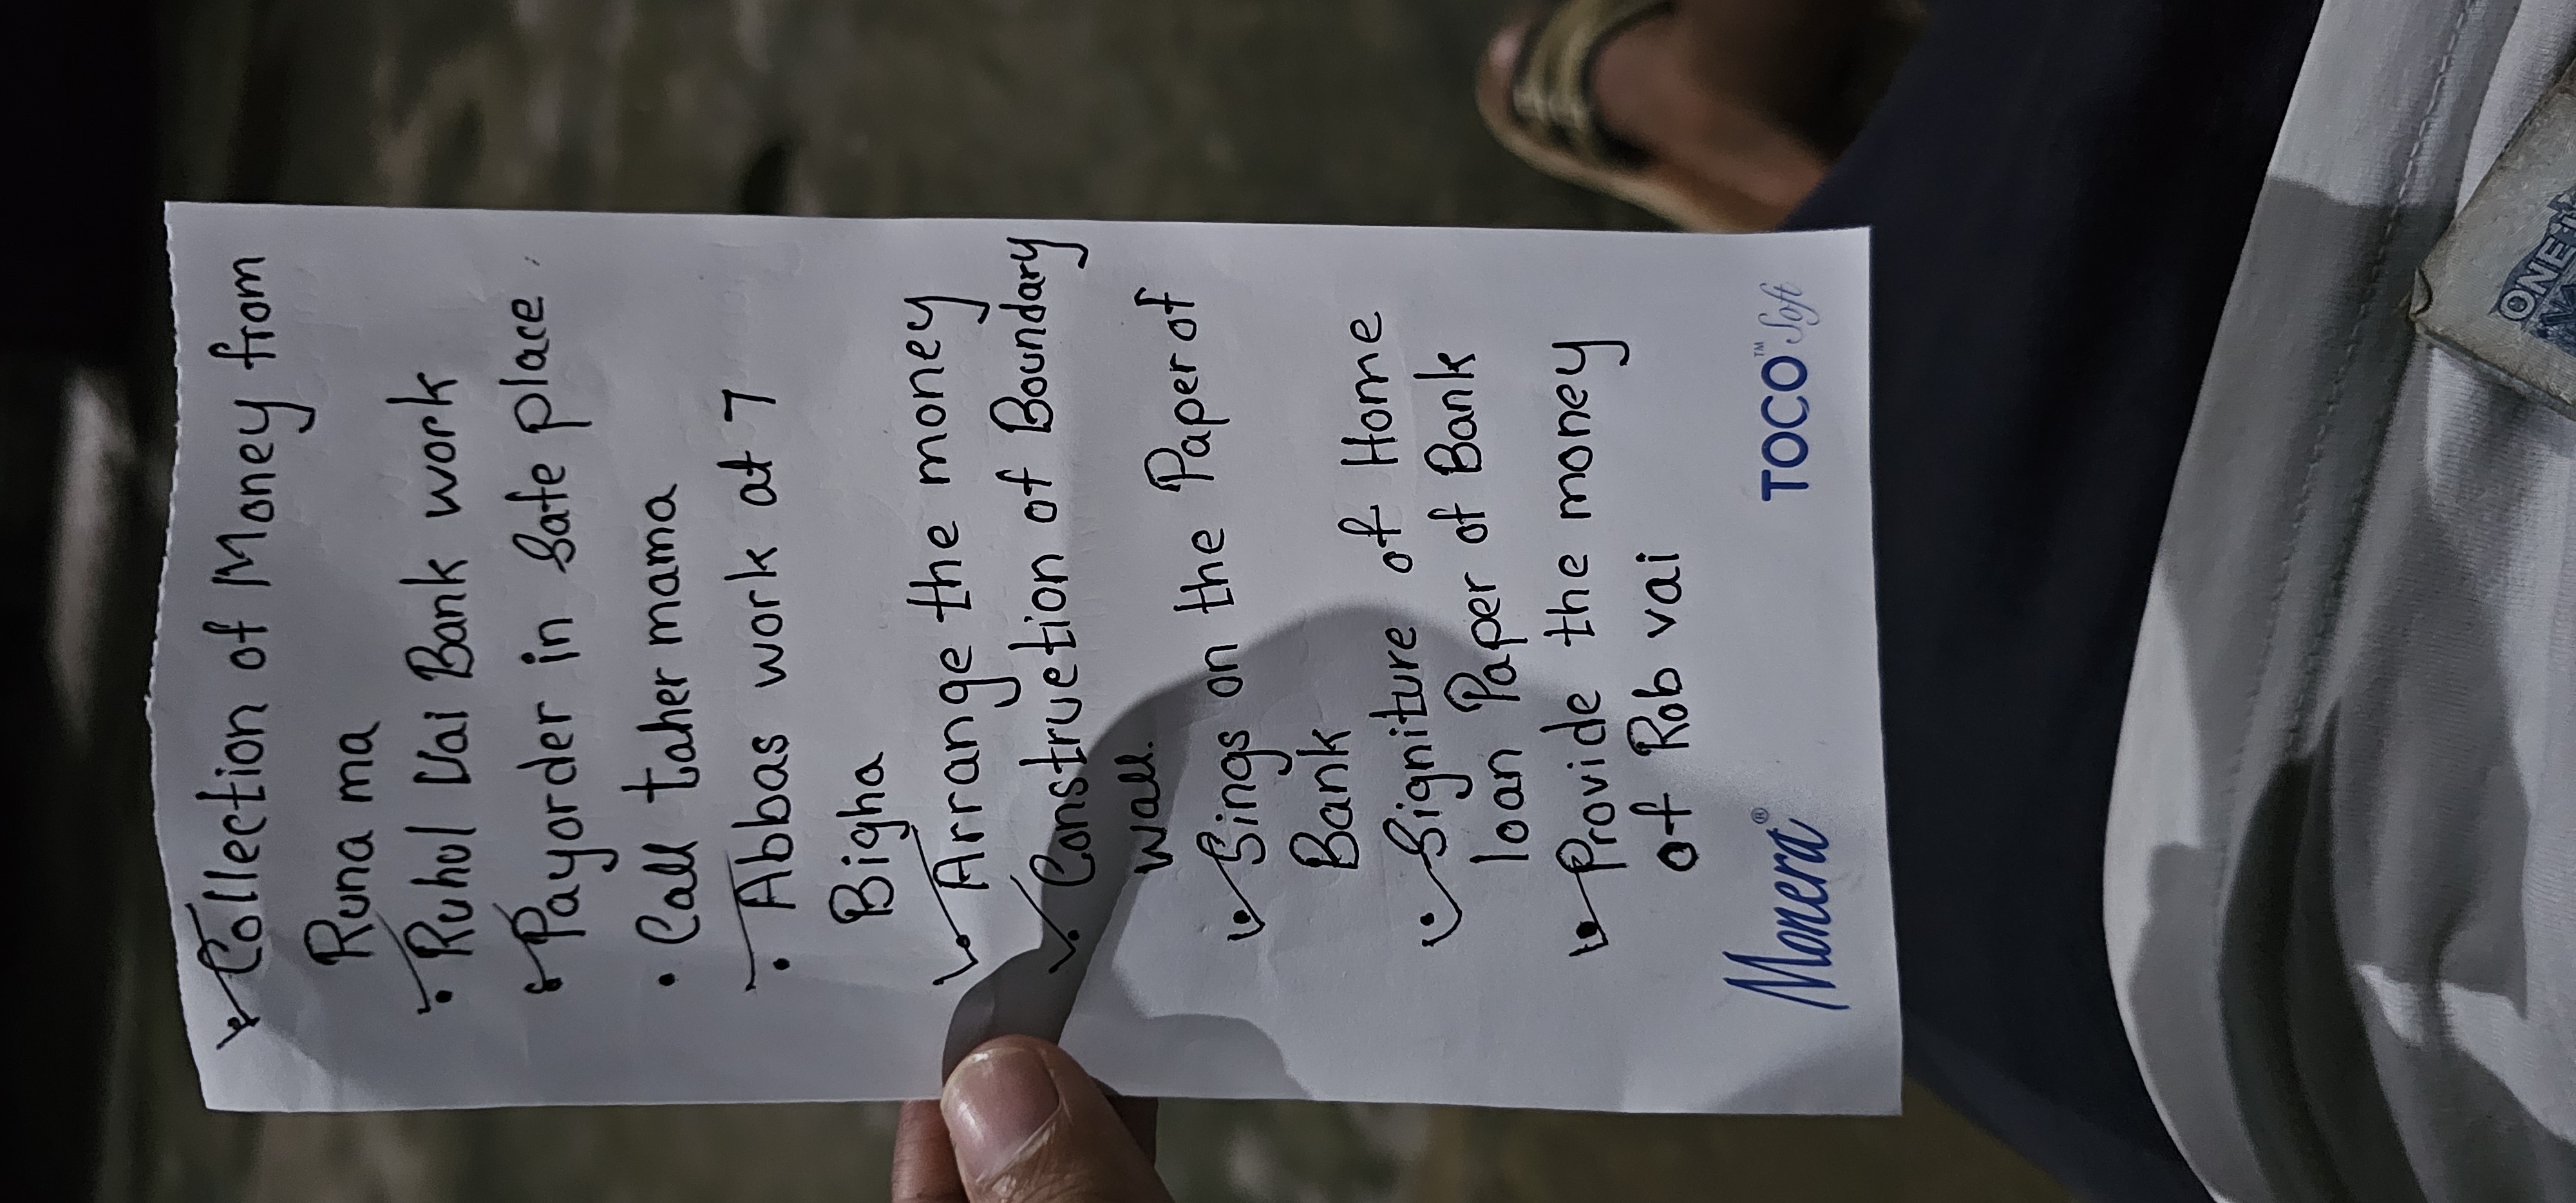 Collection of Money from
Runa ma
• Ruhul Vai Bank work
• Payorder in Safe place.
• Call taher mama
• Abbas work at 7
Bigha
• Arrange the money
• Construction of Boundary
wall.
• Sings on the Paper of
Bank
• Signiture of Home
loan Paper of Bank
• Provide the money
of Rob vai
Monera® TOCO™ Soft
ONE